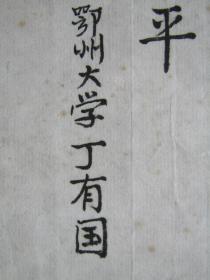 平
鄂州大学丁有国